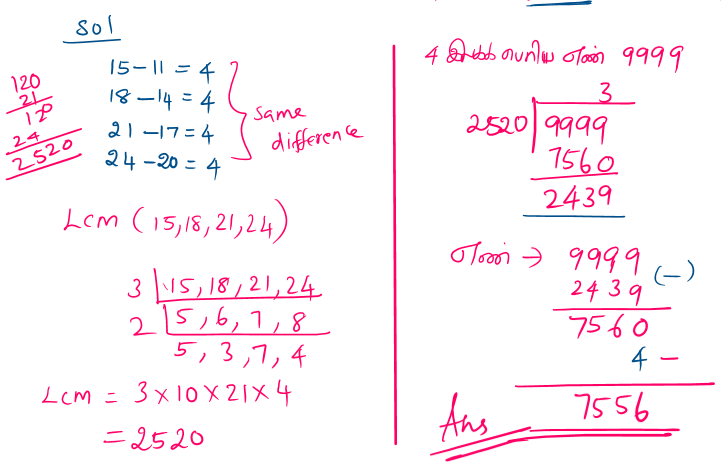 Sol
120
21
120
24
2520
15-11 = 4
18-14 = 4
21-17=4
24-20=4
same difference
Lcm (15,18,21,24)
3 | 15,18,21,24
2 | 5,6,7,8
5,3,7,4
Lcm = 3×10×21×4
= 2520
4 இலக்க பெரிய எண் 9999
3
2520 | 9999
7560
2439
எண் → 9999
2439 (-)
7560
4 -
Ans 7556